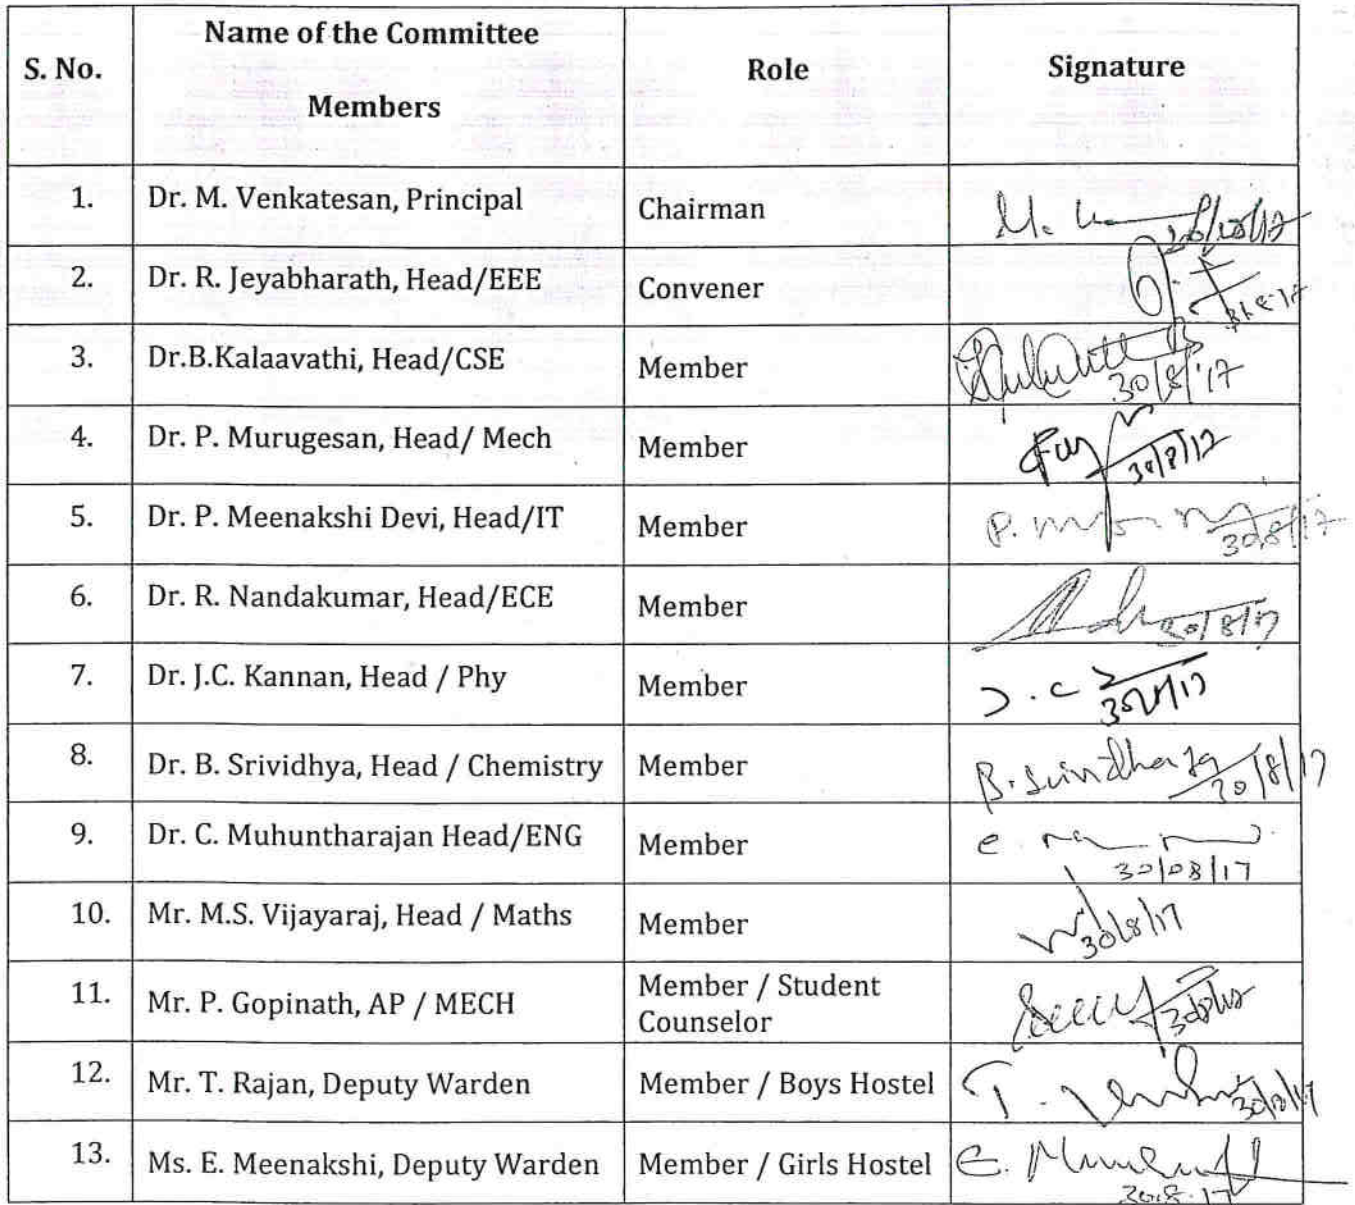 S. No. Name of the Committee Members Role Signature
1. Dr. M. Venkatesan, Principal Chairman
2. Dr. R. Jeyabharath, Head/EEE Convener
3. Dr.B.Kalaavathi, Head/CSE Member 30/8/17
4. Dr. P. Murugesan, Head/ Mech Member 30/8/17
5. Dr. P. Meenakshi Devi, Head/IT Member 30/8/17
6. Dr. R. Nandakumar, Head/ECE Member 30/8/17
7. Dr. J.C. Kannan, Head / Phy Member
8. Dr. B. Srividhya, Head / Chemistry Member 30/8/17
9. Dr. C. Muhuntharajan Head/ENG Member 30/08/17
10. Mr. M.S. Vijayaraj, Head / Maths Member 30/8/17
11. Mr. P. Gopinath, AP / MECH Member / Student Counselor
12. Mr. T. Rajan, Deputy Warden Member / Boys Hostel
13. Ms. E. Meenakshi, Deputy Warden Member / Girls Hostel 30.8.17